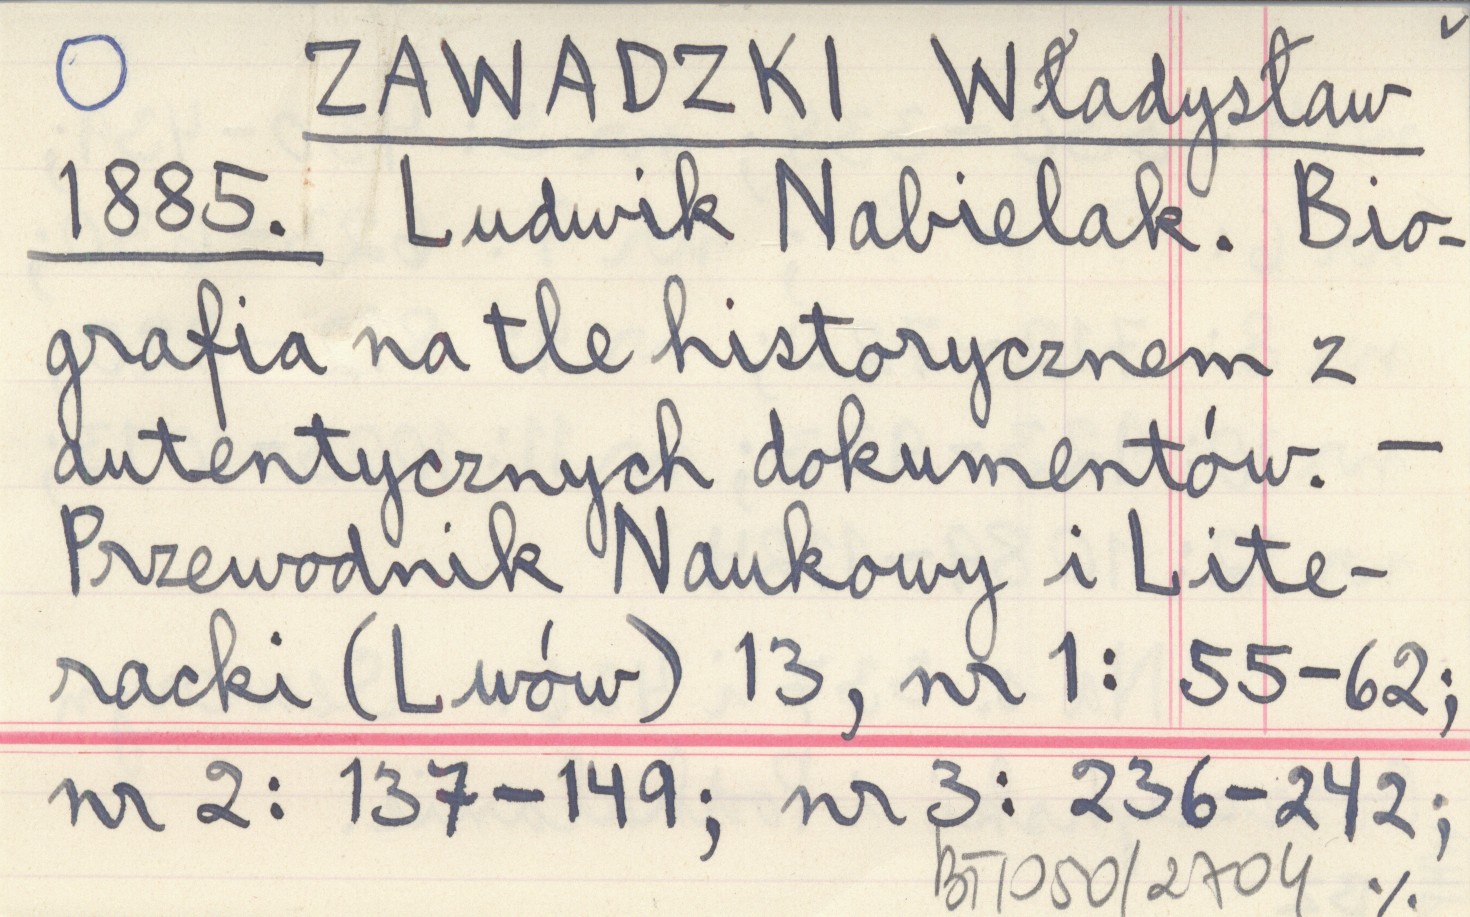 ZAWADZKI Władysław
1885. Ludwik Nabielak. Bio-
grafia na tle historycznem z
autentycznych dokumentów. —
Przewodnik Naukowy i Lite-
racki (Lwów) 13, nr 1: 55-62;
nr 2: 137-149; nr 3: 236-242;
BT1050/2704 ./.